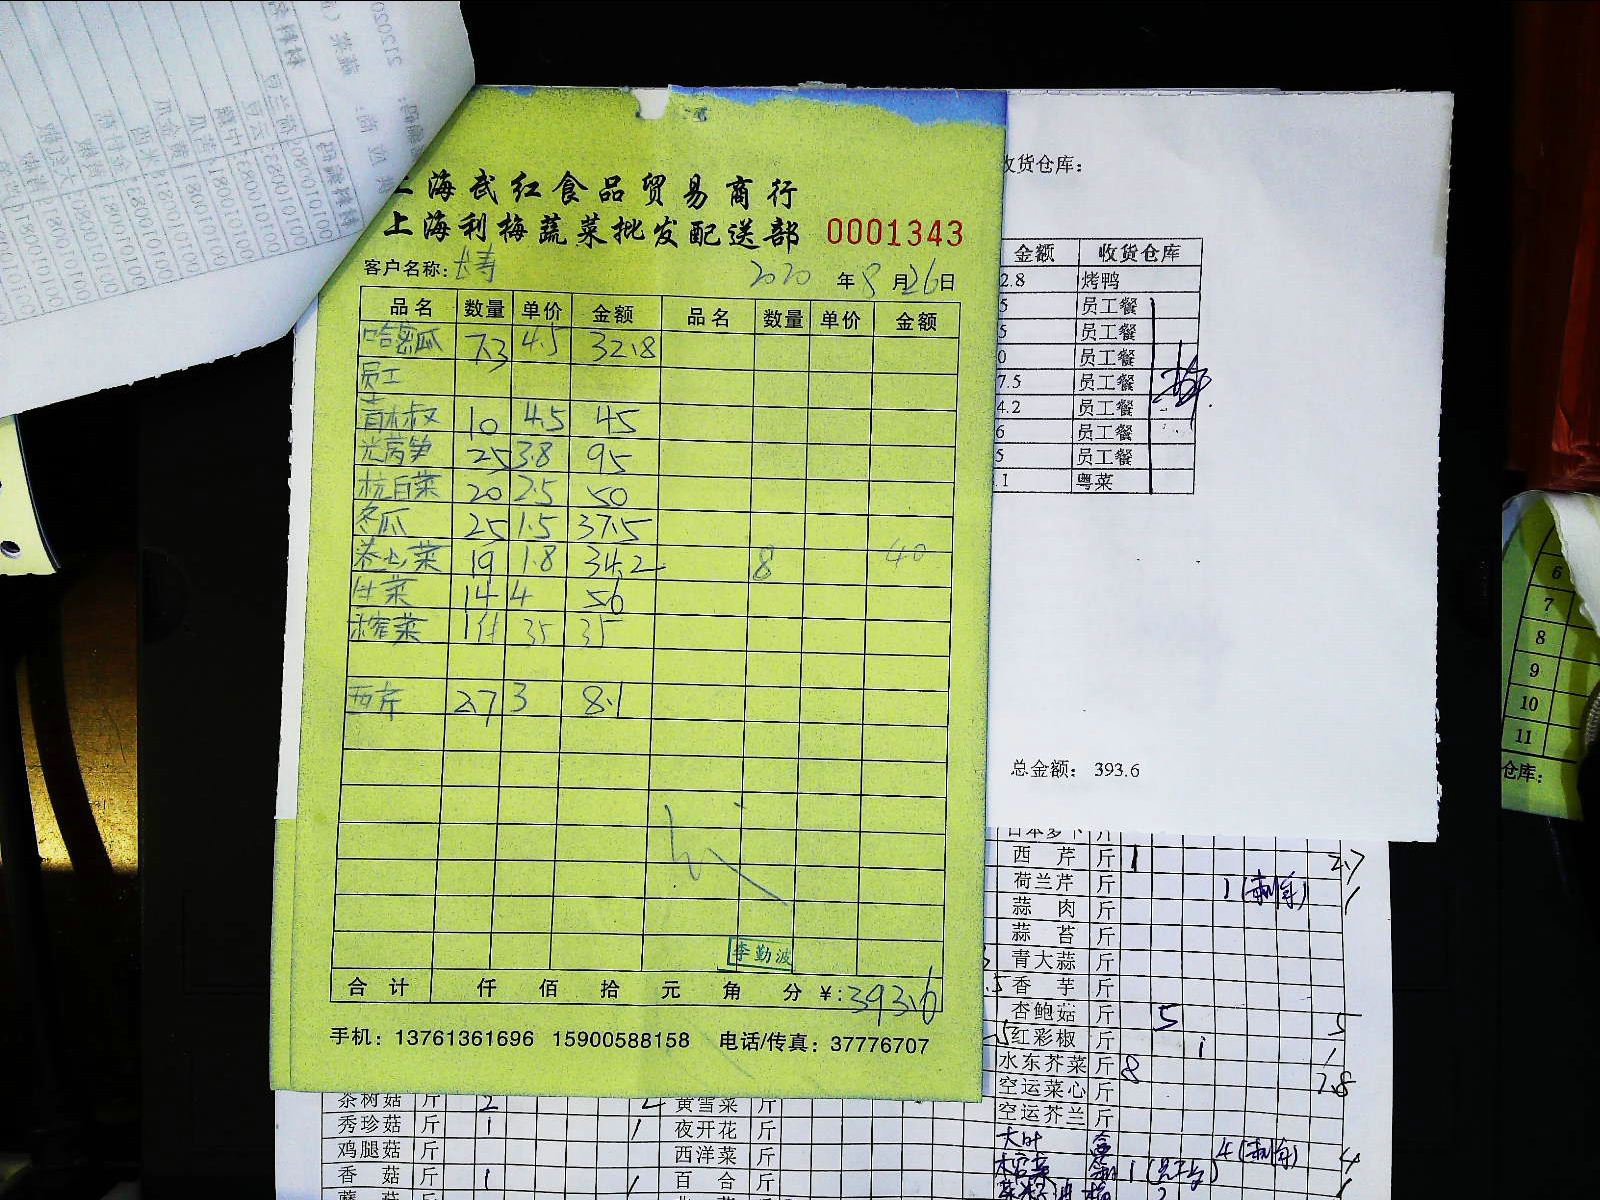 上海武红食品贸易商行
上海利梅蔬菜批发配送部 0001343
客户名称: 长寿 2020 年 8 月 26 日
品名 数量 单价 金额 品名 数量 单价 金额
哈密瓜 7.3 4.5 32.8
员工
青木叔 10 4.5 45
光莴笋 25 3.8 95
杭白菜 20 2.5 50
冬瓜 25 1.5 37.5
卷心菜 19 1.8 34.2 8 40
生菜 14 4 56
榨菜 1件 35 35
西芹 2.7 3 8.1
李勤波
合计 仟 佰 拾 元 角 分 ¥: 393.6
手机: 13761361696 15900588158 电话/传真: 37776707
收货仓库:
金额 收货仓库
2.8 烤鸭
5 员工餐
5 员工餐
0 员工餐
7.5 员工餐
4.2 员工餐
6 员工餐
5 员工餐
1 粤菜
总金额: 393.6
西芹 斤 1 2.7
荷兰芹 斤 1 1
蒜肉 斤
蒜苔 斤
青大蒜 斤
香芋 斤
杏鲍菇 斤 5 5
红彩椒 斤 1 1
水东芥菜 斤 8 7.8
空运菜心 斤
空运芥兰 斤
大叶 4 4
茶树菇 斤 2 2 黄雪菜 斤
秀珍菇 斤 1 1 夜开花 斤
鸡腿菇 斤 西洋菜 斤
香菇 斤 1 1 百合 斤
6
7
8
9
10
11
仓库: